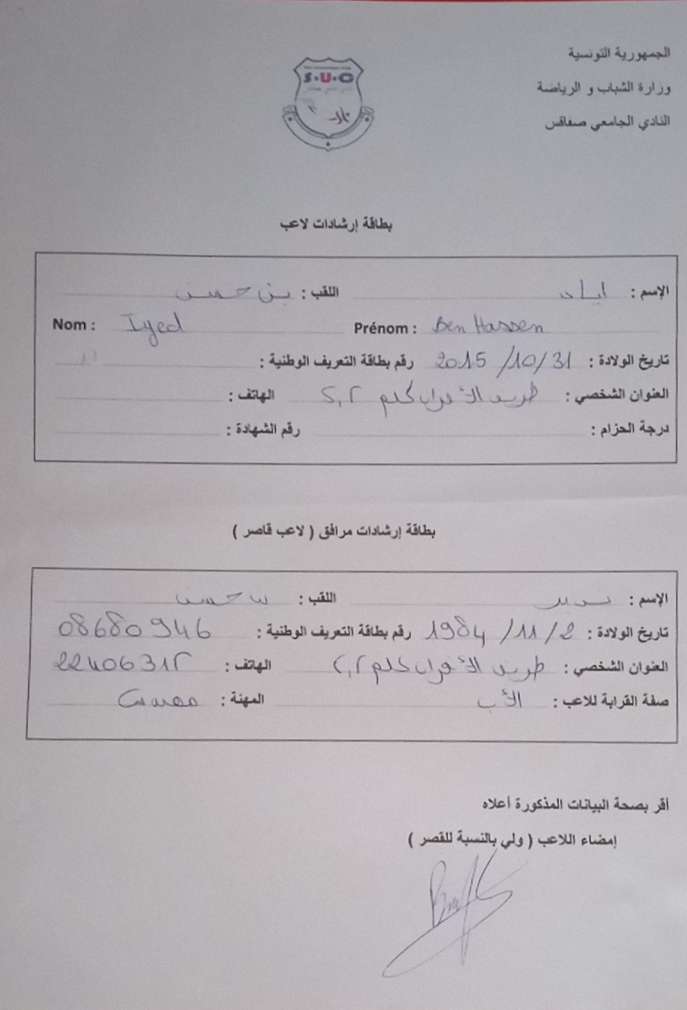 الجمهورية التونسية
وزارة الشباب و الرياضة
النادي الجامعي صفاقس
S.U.C
بطاقة إرشادات لاعب
الإسم : اياد اللقب : بن حسن
Nom : Iyed Prénom : Ben Hassen
تاريخ الولادة : 2015/10/31 رقم بطاقة التعريف الوطنية :
العنوان الشخصي : طريق الأفران كلم الهاتف :
درجة الحزام : رقم الشهادة :
بطاقة إرشادات مرافق ( لاعب قاصر )
الإسم : اللقب : بن حسن
تاريخ الولادة : 1984/11/2 رقم بطاقة التعريف الوطنية : 08680946
العنوان الشخصي : طريق الأفران كلم الهاتف : 22406312
صفة القرابة للاعب : الأب المهنة : مهندس
أقر بصحة البيانات المذكورة أعلاه
إمضاء اللاعب ( ولي بالنسبة للقصر )